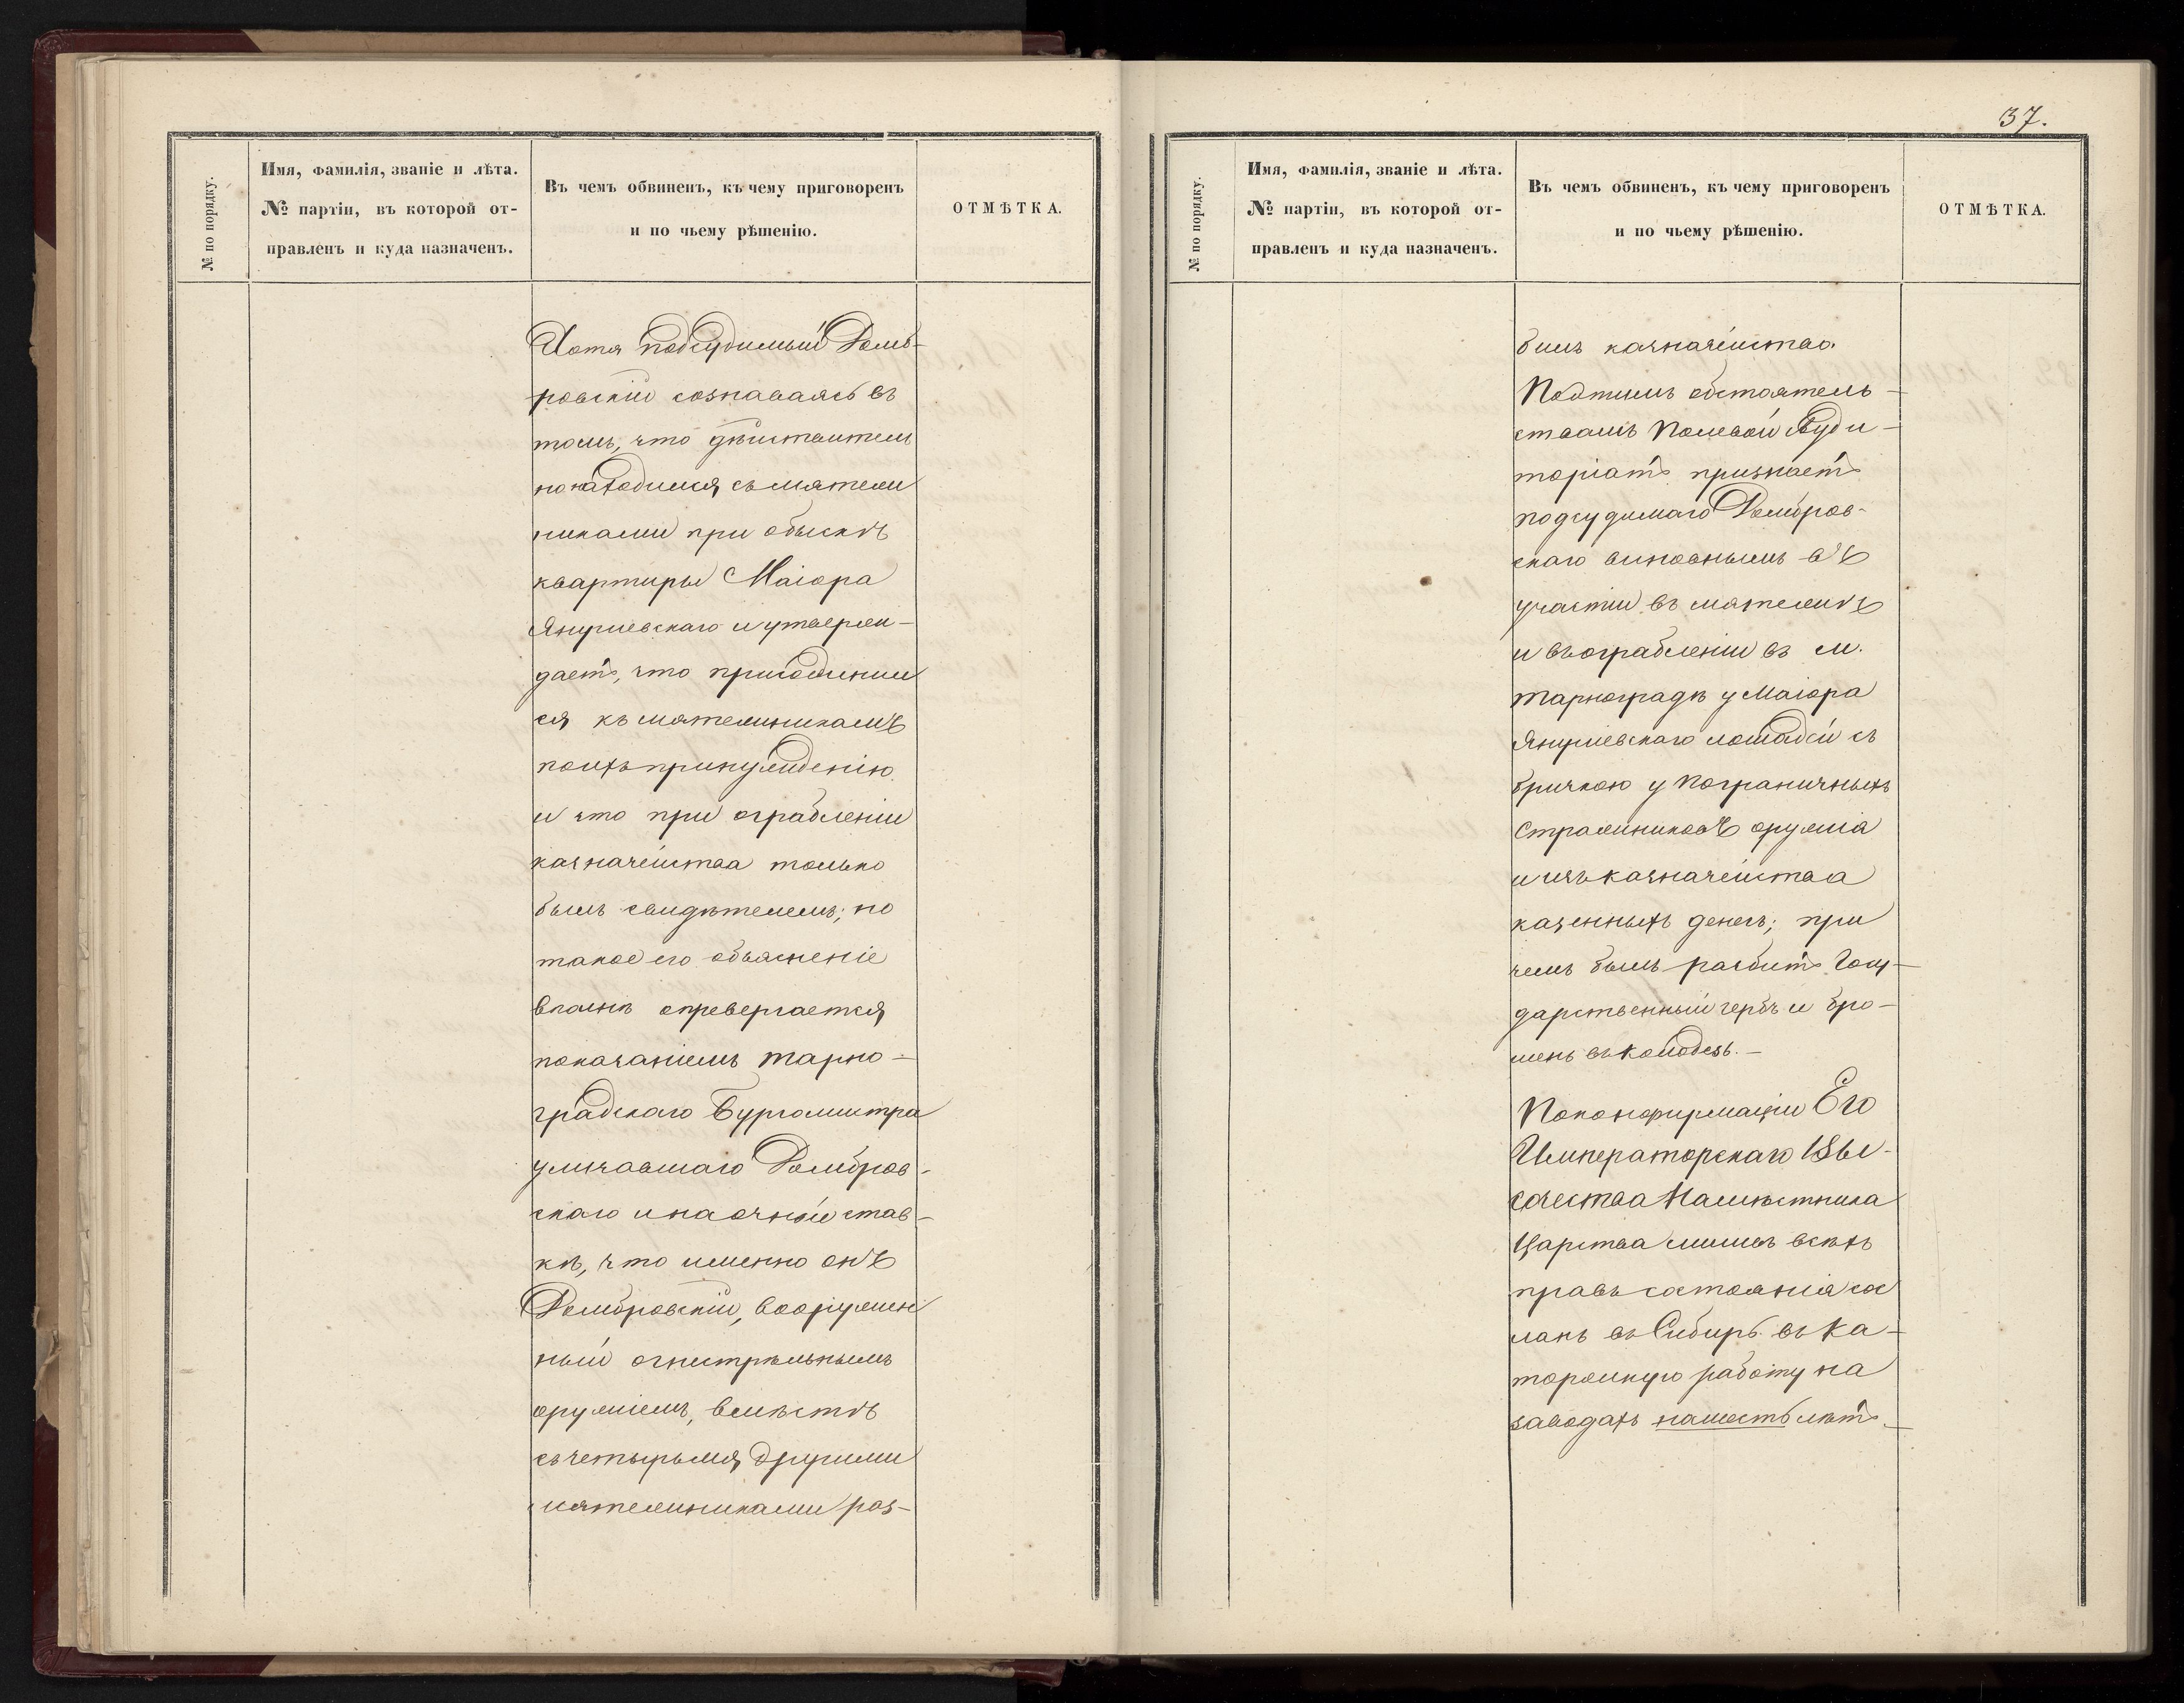 № по порядку.
Имя, фамилія, званіе и лѣта.
№ партіи, въ которой от-
правленъ и куда назначенъ.
Въ чемъ обвиненъ, къ чему приговоренъ
и по чьему рѣшенію.
ОТМѢТКА.
Хотя подсудимый Домб-
ровскій сознаваясь въ
томъ, что дѣйствитель
но находился съ мятеж
никами при обыскѣ
квартиры Маіора
Янушевскаго и утверж-
даетъ, что присоединил
ся къ мятежникамъ
по ихъ принужденію
и что при ограбленіи
казначейства только
былъ свидѣтелемъ; но
такое его объясненіе
вполнѣ опревергается
показаніемъ Тарно-
градскаго Бургомистра
уличавшаго Домбров-
скаго и на очной став-
кѣ, что именно онъ
Домбровскій, вооружен
ный огнестрѣльнымъ
оружіемъ, вмѣстѣ
съ четырьмя другими
мятежниками раз-
37.
№ по порядку.
Имя, фамилія, званіе и лѣта.
№ партіи, въ которой от-
правленъ и куда назначенъ.
Въ чемъ обвиненъ, къ чему приговоренъ
и по чьему рѣшенію.
ОТМѢТКА.
билъ казначейство.
По этимъ обстоятель-
ствамъ Полевой Ауди-
торіатъ призналъ
подсудимаго Домбров-
скаго виновнымъ въ
участіи въ мятежѣ
и въ ограбленіи въ м.
Тарноградѣ у Маіора
Янушевскаго лошадей съ
бричкою у пограничныхъ
Стражниковъ оружія
и изъ казначейства
казенныхъ денегъ; при
чемъ былъ разбитъ Госу-
дарственный гербъ и бро-
шенъ въ колодезь.—
По конфирмаціи Его
Императорскаго Вы-
сочества Намѣстника
Царства лишенъ всѣхъ
правъ состоянія сос
ланъ въ Сибирь въ ка-
торжную работу на
заводахъ на шесть лѣтъ.—